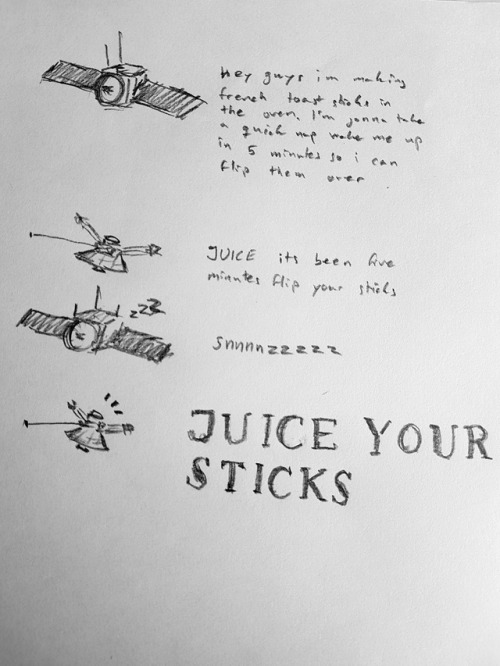 Hey guys im making
french toast sticks in
the oven. I'm gonna take
a quick nap wake me up
in 5 minutes so i can
flip them over
JUICE its been five
minutes flip your sticks
zzZ
Snnnnzzzzz
JUICE YOUR
STICKS